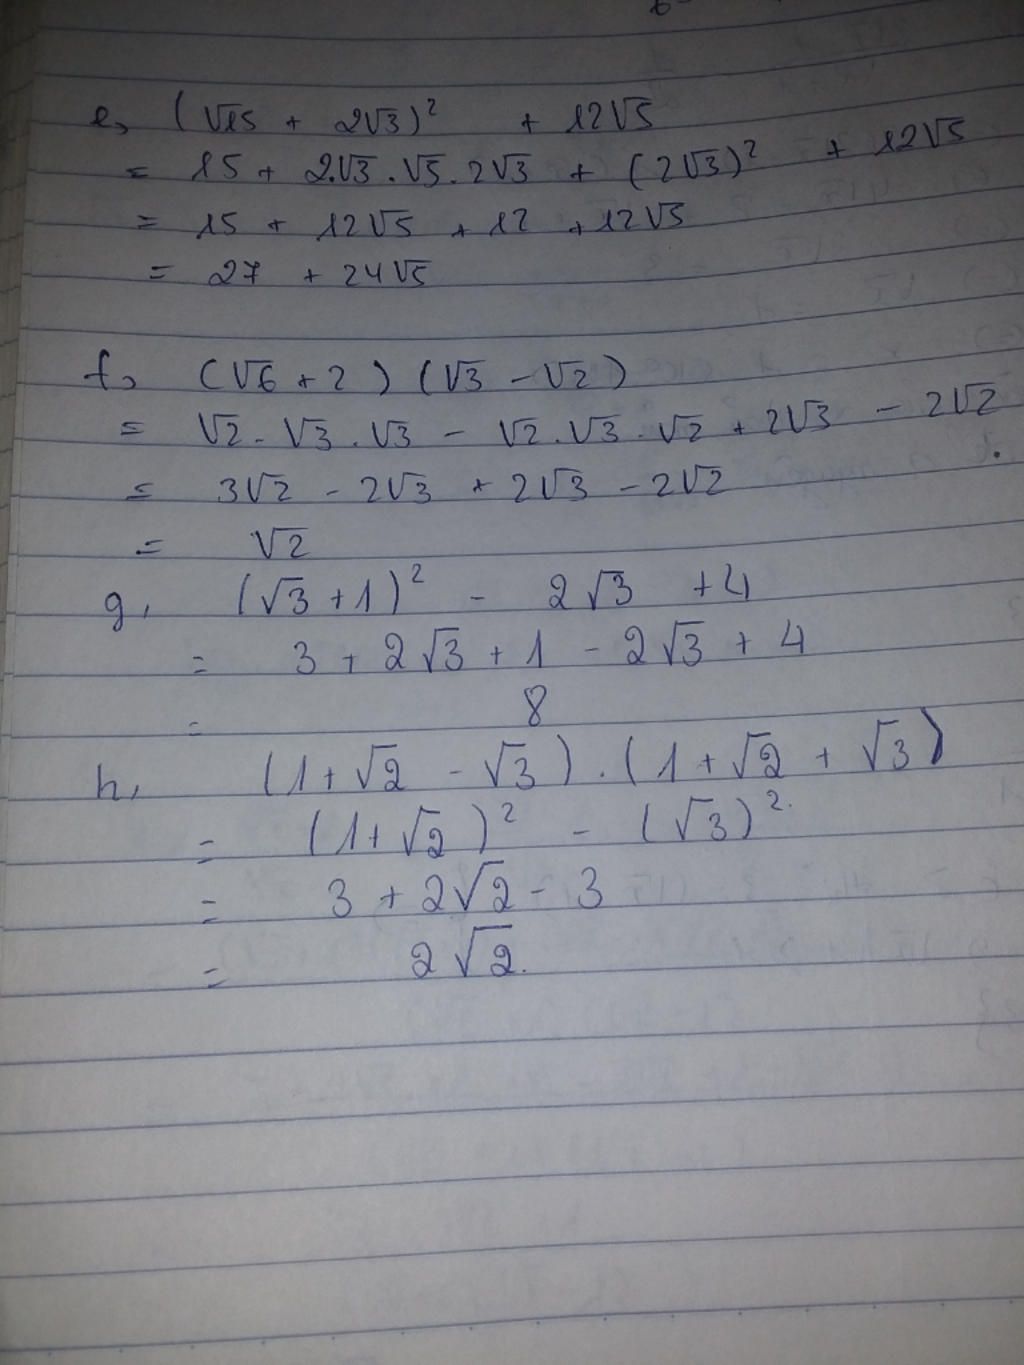 e, (√15 + 2√3)² + 12√5
= 15 + 2.√3.√5.2√3 + (2√3)² + 12√5
= 15 + 12√5 + 12 + 12√5
= 27 + 24√5
f, (√6 + 2) (√3 - √2)
= √2.√3.√3 - √2.√3.√2 + 2√3 - 2√2
= 3√2 - 2√3 + 2√3 - 2√2
= √2
g, (√3 + 1)² - 2√3 + 4
= 3 + 2√3 + 1 - 2√3 + 4
= 8
h, (1 + √2 - √3).(1 + √2 + √3)
= (1 + √2)² - (√3)².
= 3 + 2√2 - 3
= 2√2.